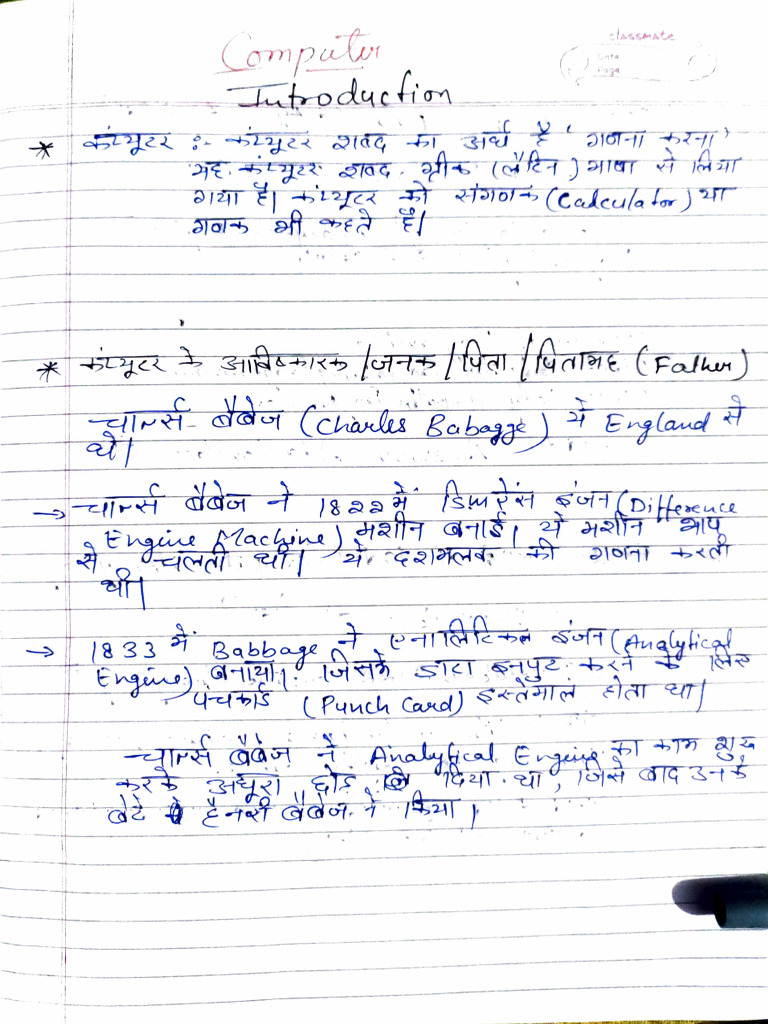 classmate
Date
Page
Computer
Introduction
* कंप्यूटर :- कंप्यूटर शब्द का अर्थ है 'गणना करना'
यह कंप्यूटर शब्द ग्रीक (लैटिन) भाषा से लिया
गया है। कंप्यूटर को संगणक (Calculator) या
गणक भी कहते हैं।
* कंप्यूटर के आविष्कारक /जनक /पिता /पितामह (Father)
चार्ल्स बैबेज (Charles Babagge) ये England से
थे।
→ चार्ल्स बैबेज ने 1822 में डिफरेंस इंजन (Difference
Engine Machine) मशीन बनाई। ये मशीन भाप
से चलती थी। ये दशमलव की गणना करती
थी।
→ 1833 में Babbage ने एनालिटिकल इंजन (Analytical
Engine) बनाया। जिसके द्वारा इनपुट करने के लिए
पंचकार्ड (Punch Card) इस्तेमाल होता था।
चार्ल्स बैबेज ने Analytical Engine का काम शुरू
करके अधूरा छोड़ दिया था, जिसे बाद उनके
बेटे हैनरी बैबेज ने किया।